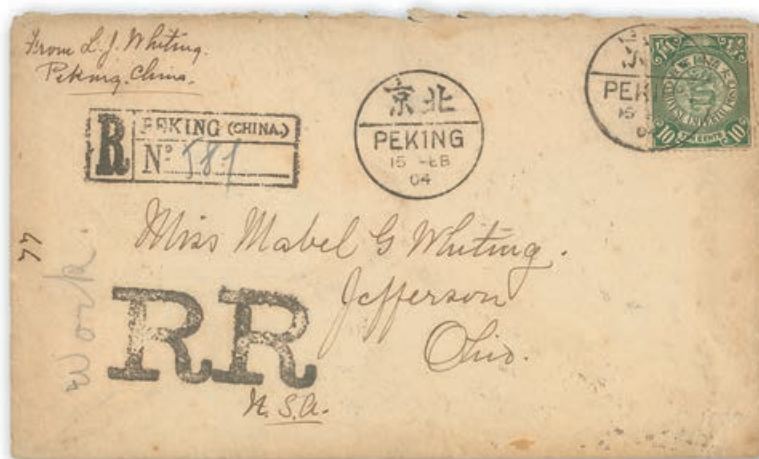 From L. J. Whiting.
Peking. China.
R PEKING (CHINA.)
Nº 581
京北
PEKING
15 FEB
04
京
PEK
15
04
TEN CENTS
10 10
Miss Mabel G Whiting.
Jefferson
Ohio.
77
Work.
RR
U.S.A.